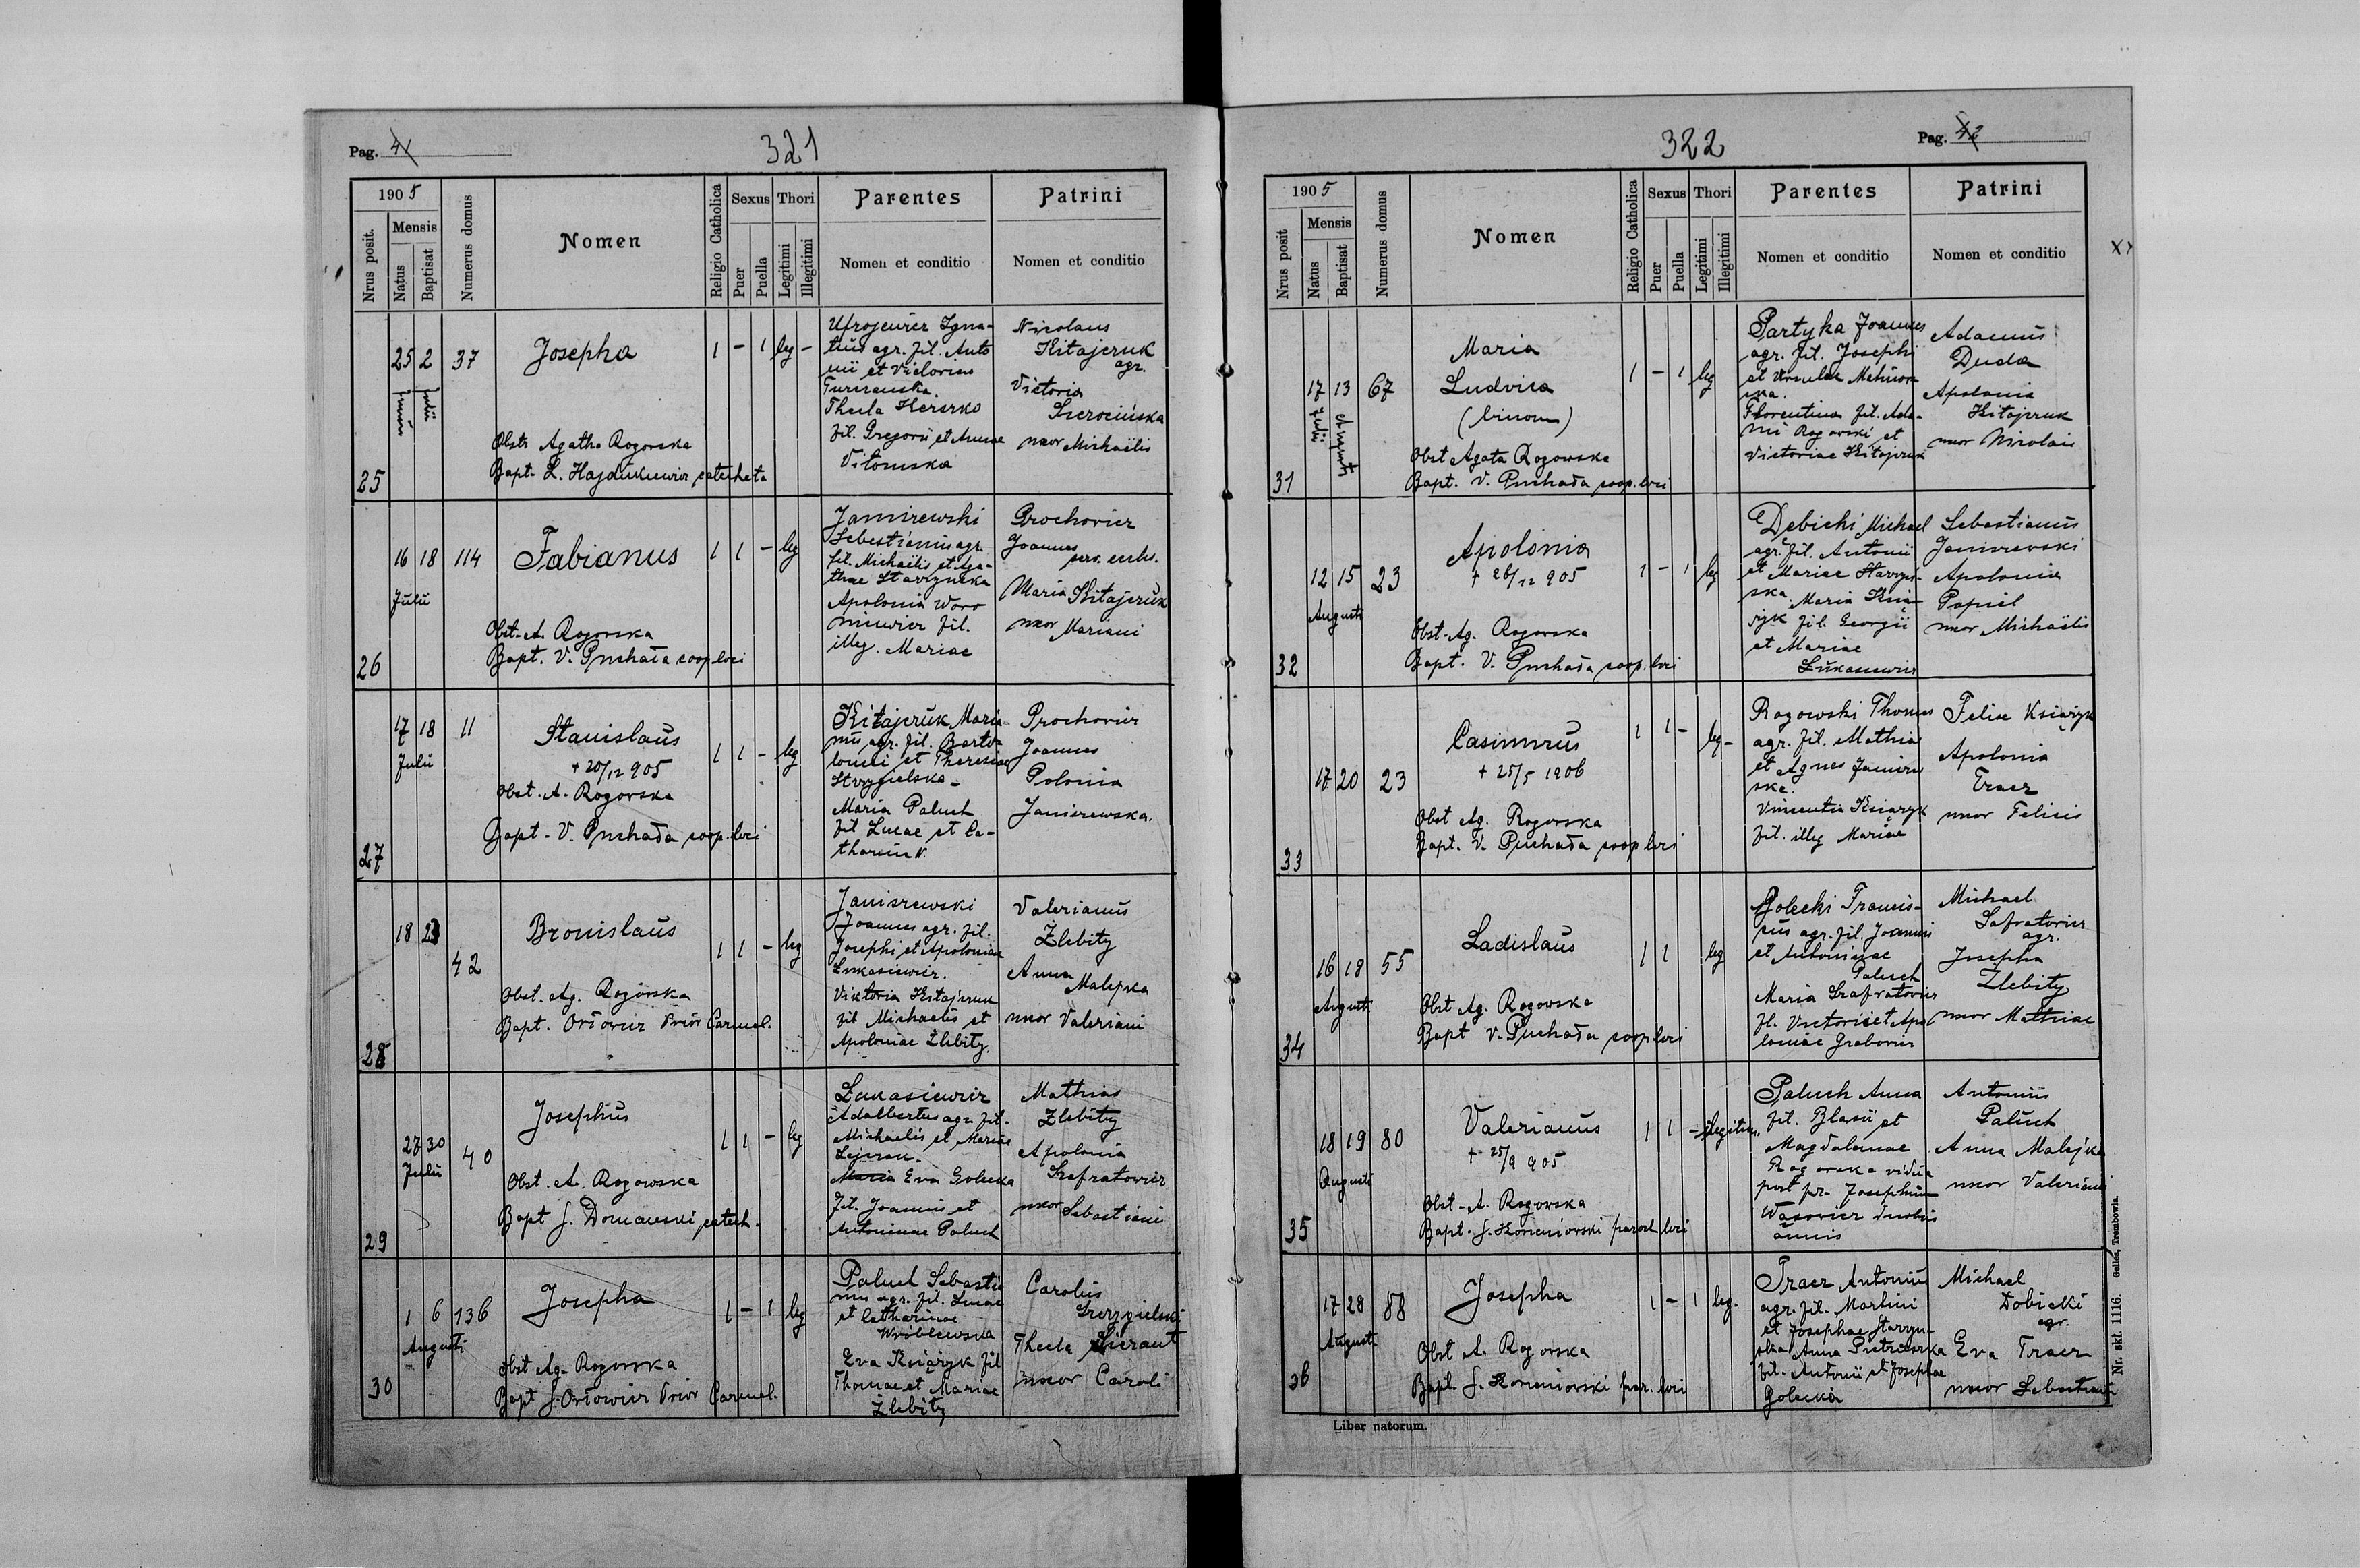 Pag. 41
321
1905
Nrus posit.
Mensis
Natus
Baptisat
Numerus domus
Nomen
Religio Catholica
Sexus
Puer
Puella
Thori
Legitimi
Illegitimi
Parentes
Nomen et conditio
Patrini
Nomen et conditio
25
25 2 37
Junii Julii
Josepha
Obstr Agatha Rogowska
Bapt. L. Hajdukiewicz catecheta
1 - 1 leg -
Igna-
tius agr. fil. Anto
nii et Victoriae
Thecla
fil. Gregorii et Annae
Nicolaus
Kitajczuk
agr.
Victoria
uxor Michaëlis
26
16 18 114
Julii
Fabianus
Obst. A. Rogowska
Bapt. V. Puchała coop. loci
1 1 - leg
Janiszewski
Sebastianus agr.
fil. Michaëlis et Aga-
thae
Apolonia Woro
niewicz fil.
illeg. Mariae
Prochowicz
Joannes
Maria Kitajczuk
uxor Mariani
27
17 18 11
Julii
Stanislaus
+ 20/12 905
Obst. A. Rogowska
Bapt. V. Puchała coop. loci
1 1 - leg
Kitajczuk Maria
nus agr. fil. Barto
lomei et Theresiae
Maria Paluch
fil Lucae et Ca-
Prochowicz
Joannes
Polonia
Janiszewska.
28
18 23
42
Bronislaus
Obst. Ag. Rogowska
Bapt. Orłowicz Prior Carmel.
1 1 - leg
Janiszewski
Joannes agr. fil.
Josephi et Apoloniae
Lukasiewicz.
Viktoria Kitajczuk
fil Michaelis et
Apoloniae Zlebity.
Valerianus
Zlebity
Anna
Malejka
uxor Valeriani
29
27 30
Julii
40
Josephus
Obst. A. Rogowska
Bapt J. catech.
1 1 - leg
Lukasiewicz
Adalbertus agr. fil.
Michaelis et Mariae
Maria Eva Golecka
fil. Joannis et
Antoninae Paluch
Mathias
Zlebity
Apolonia
Szafratowicz
uxor Sebastiani
30
1 6 136
Augusti
Josepha
Obst Ag. Rogowska
Bapt J. Orłowicz Prior Carmel.
1 - 1 leg
Paluch Sebastia
nus agr. fil. Lucae
et Catharinae
Wróblewska
Eva Książyk fil
Thomae et Mariae
Zlebity
Carolus
Thecla
uxor Caroli
322
Pag. 42
1905
Nrus posit
Mensis
Natus
Baptisat
Numerus domus
Nomen
Religio Catholica
Sexus
Puer
Puella
Thori
Legitimi
Illegitimi
Parentes
Nomen et conditio
Patrini
Nomen et conditio
31
17 13 67
Julii Augusti
Maria
Ludvica
(binom)
Obst Agata Rogowska
Bapt. V. Puchała coop. loci
1 - 1 leg
Partyka Joannes
agr. fil. Josephi
et Ursulae
Florentina fil. Ada-
mi Rogowski et
Victoriae Kitajczuk
Adamus
Duda
Apolonia
Kitajczuk
uxor Nicolai
32
12 15 23
Augusti
Apolonia
+ 26/12 905
Obst. Ag. Rogowska
Bapt. V. Puchała coop. loci
1 - 1 leg
Debicki Michael
agr. fil. Antonii
et Mariae
Maria Ksią-
żyk fil. Georgii
et Mariae
Lukasiewicz
Sebastianus
Janiszewski
Apolonia
Papiel
uxor Michaëlis
33
17 20 23
Casimirus
+ 25/5 1906
Obst Ag. Rogowska
Bapt. V. Puchała coop loci
1 1 - leg -
Rogowski Thomas
agr. fil. Mathiae
et Agnes
Vincentia Książyk
fil. illeg Mariae
Felix Książyk
Apolonia
Tracz
uxor Felicis
34
16 18 55
Augusti
Ladislaus
Obst Ag. Rogowska
Bapt V. Puchała coop loci
1 1 leg
Golecki Francis-
cus agr. fil. Joannis
et Antoninae
Paluch
Maria Szafratowicz
fil. Victorii et Apo
loniae Grabowicz
Michael
Safratowicz
agr.
Josepha
Zlebity
uxor Mathiae
35
18 19 80
Augusti
Valerianus
+ 25/9 905
Obst. A. Rogowska
Bapt. J. paroch loci
1 1 - illegitim.
Paluch Anna
fil. Blasii et
Magdalenae
Rogowska vidua
post pr. Josephum
Wąsowicz duobus
annis
Antonius
Paluch
Anna Malejka
uxor Valeriani
36
17 28 88
Augusti
Josepha
Obst A. Rogowska
Bapt. J. par. loci
1 - 1 leg.
Tracz Antonius
agr. fil. Martini
et Josephae
Anna
fil. Antonii et Josephae
Golecka
Michael
Dobicki
agr.
Eva Tracz
uxor Sebastiani
Liber natorum.
Nr. skł. 1116. Gelles, Trembowla.